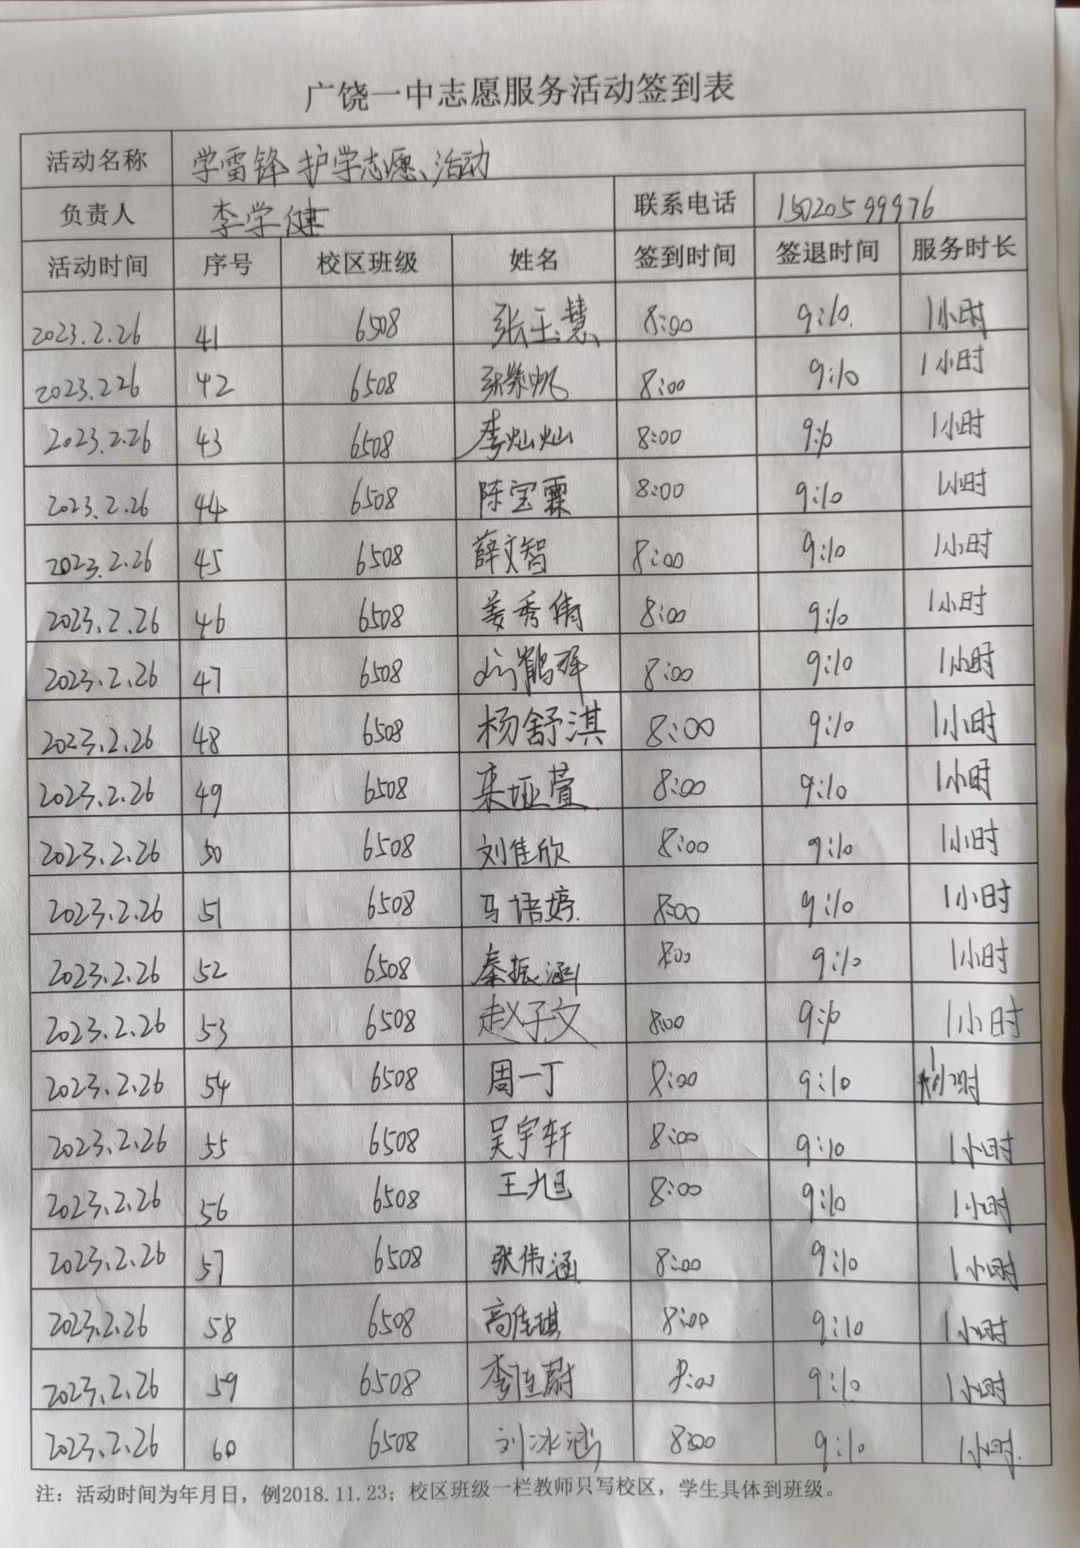 广饶一中志愿服务活动签到表
活动名称 学雷锋护学志愿活动
负责人 李学健 联系电话 15020599976
活动时间 序号 校区班级 姓名 签到时间 签退时间 服务时长
2023.2.26 41 6508 张玉慧 8:00 9:10. 1小时
2023.2.26 42 6508 张 帆 8:00 9:10 1小时
2023.2.26 43 6508 李灿灿 8:00 9:10 1小时
2023.2.26 44 6508 陈宝霖 8:00 9:10 1小时
2023.2.26 45 6508 薛文智 8:00 9:10 1小时
2023.2.26 46 6508 姜秀倩 8:00 9:10 1小时
2023.2.26 47 6508 8:00 9:10 1小时
2023.2.26 48 6508 杨舒淇 8:00 9:10 1小时
2023.2.26 49 6508 栾垭萱 8:00 9:10 1小时
2023.2.26 50 6508 刘佳欣 8:00 9:10 1小时
2023.2.26 51 6508 马语婷 8:00 9:10 1小时
2023.2.26 52 6508 秦振涵 8:00 9:10 1小时
2023.2.26 53 6508 赵子文 8:00 9:10 1小时
2023.2.26 54 6508 周一丁 8:00 9:10 1小时
2023.2.26 55 6508 吴宇轩 8:00 9:10 1小时
2023.2.26 56 6508 王旭 8:00 9:10 1小时
2023.2.26 57 6508 张伟涵 8:00 9:10 1小时
2023.2.26 58 6508 高佳琪 8:00 9:10 1小时
2023.2.26 59 6508 李佳蔚 8:00 9:10 1小时
2023.2.26 60 6508 刘冰涵 8:00 9:10 1小时
注：活动时间为年月日，例2018.11.23；校区班级一栏教师只写校区，学生具体到班级。